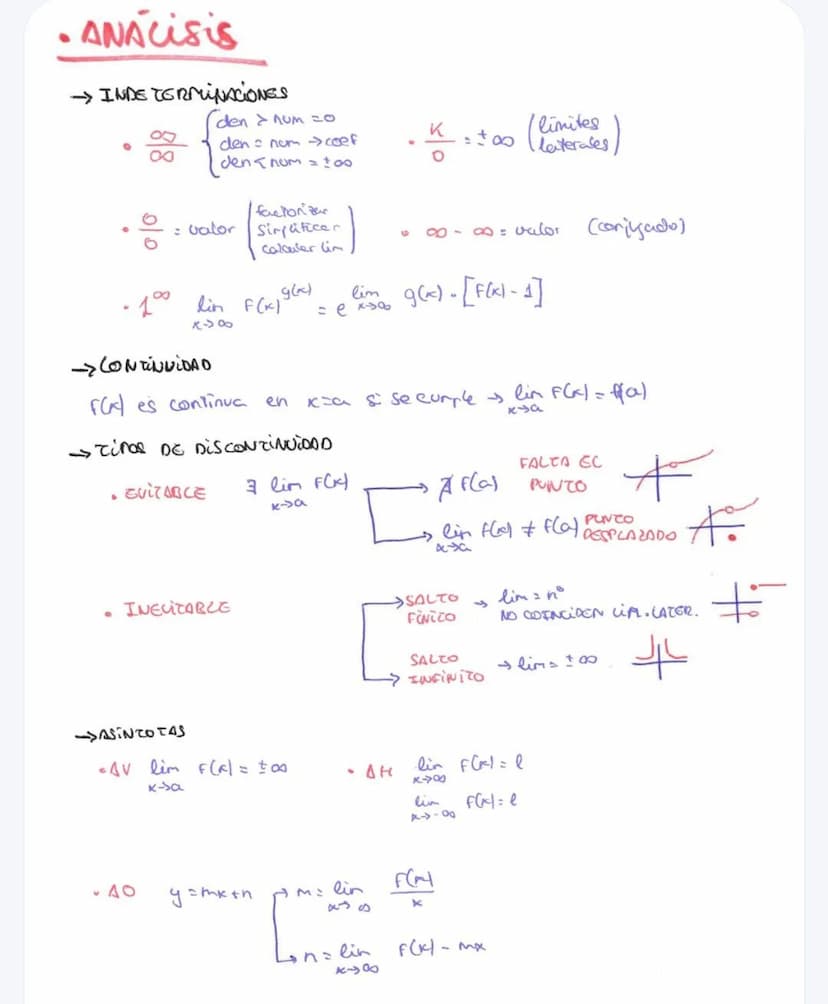 • ANÁLISIS
→ INDETERMINACIONES
• ∞/∞ { den > num = 0
den = num → coef
den < num = ± ∞
• K/0 = ± ∞ (límites laterales)
• 0/0 = valor (factorizar
simplificar
calcular lim)
• ∞ - ∞ = valor (conjugado)
• 1^∞ lim x→∞ F(x)^g(x) = e^lim x→∞ g(x) · [F(x) - 1]
→ CONTINUIDAD
F(x) es continua en x=a si se cumple → lim x→a F(x) = f(a)
→ TIPOS DE DISCONTINUIDAD
• EVITABLE ∃ lim x→a F(x) → ∄ F(a) FALTA EL PUNTO
→ lim x→a F(x) ≠ F(a) PUNTO DESPLAZADO
• INEVITABLE
→ SALTO FINITO → lim = nº
NO COINCIDEN LIM. LATER.
→ SALTO INFINITO → lim = ± ∞
→ ASÍNTOTAS
• AV lim x→a F(x) = ± ∞
• AH lim x→∞ F(x) = l
lim x→-∞ F(x) = l
• AO y = mx + n → m = lim x→∞ F(x)/x
→ n = lim x→∞ F(x) - mx